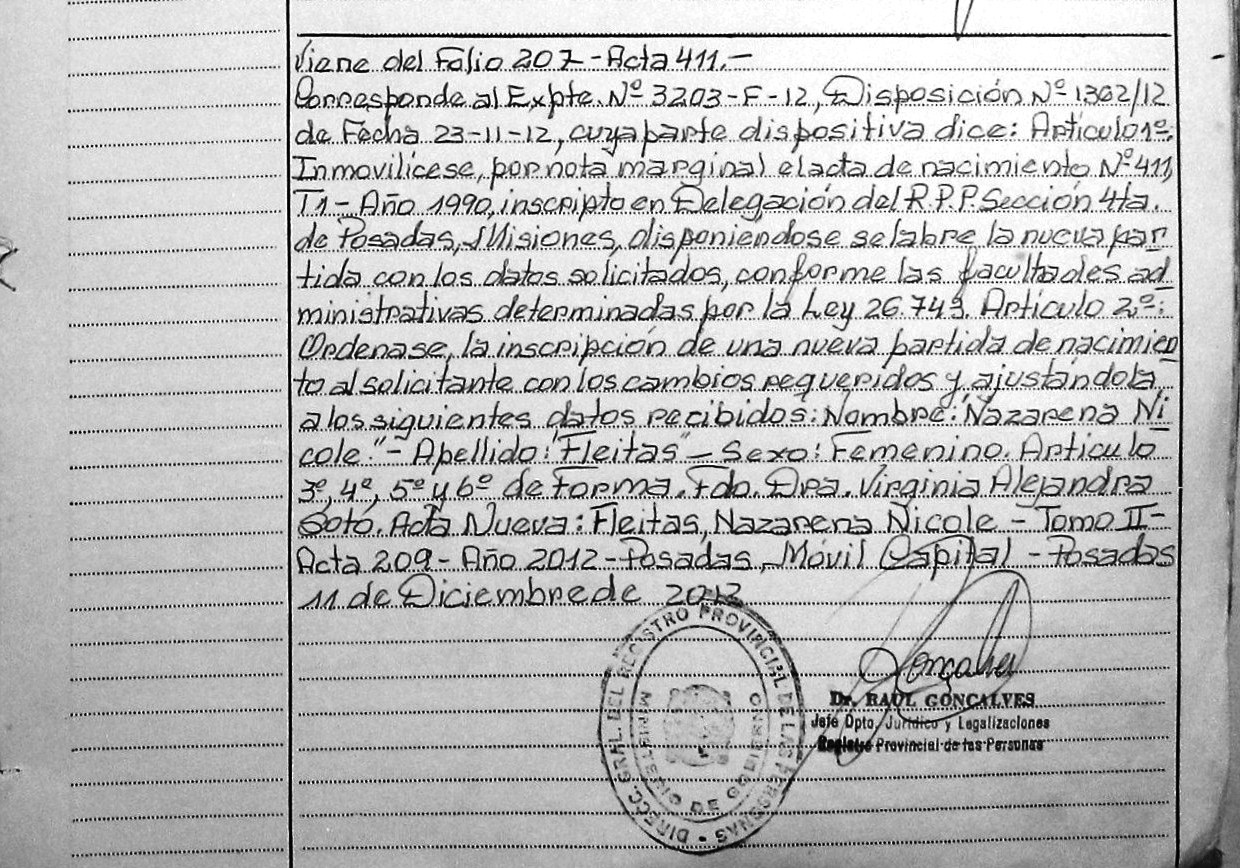 Viene del Folio 207 - Acta 411.-
Corresponde al Expte. Nº 3203-F-12, Disposición Nº 1362/12
de Fecha 23-11-12, cuya parte dispositiva dice: Artículo 1º:
Inmovilícese, por nota marginal el acta de nacimiento Nº 411,
T1 - Año 1990, inscripto en Delegación del R.P.P. Sección 4ta.
de Posadas, Misiones, disponiendose se labre la nueva par
tida con los datos solicitados, conforme las facultades ad
ministrativas determinadas por la Ley 26.743. Articulo 2º:
Ordenase, la inscripción de una nueva partida de nacimien
to al solicitante con los cambios requeridos y ajustándola
a los siguientes datos recibidos: Nombre: "Nazarena Ni
cole" - Apellido: "Fleitas" - Sexo: Femenino. Articulo
3º, 4º, 5º y 6º de Forma. Fdo. Dra. Virginia Alejandra
Soto. Acta Nueva: Fleitas, Nazarena Nicole - Tomo II -
Acta 209 - Año 2012 - Posadas, Móvil Capital - Posadas
11 de Diciembre de 2012
DIRECC. GRAL. DEL REGISTRO PROVINCIAL DE LAS PERSONAS
MINISTERIO DE GOBIERNO
Gonçalves
Dr. RAUL GONÇALVES
Jefe Dpto. Jurídico y Legalizaciones
Registro Provincial de las Personas